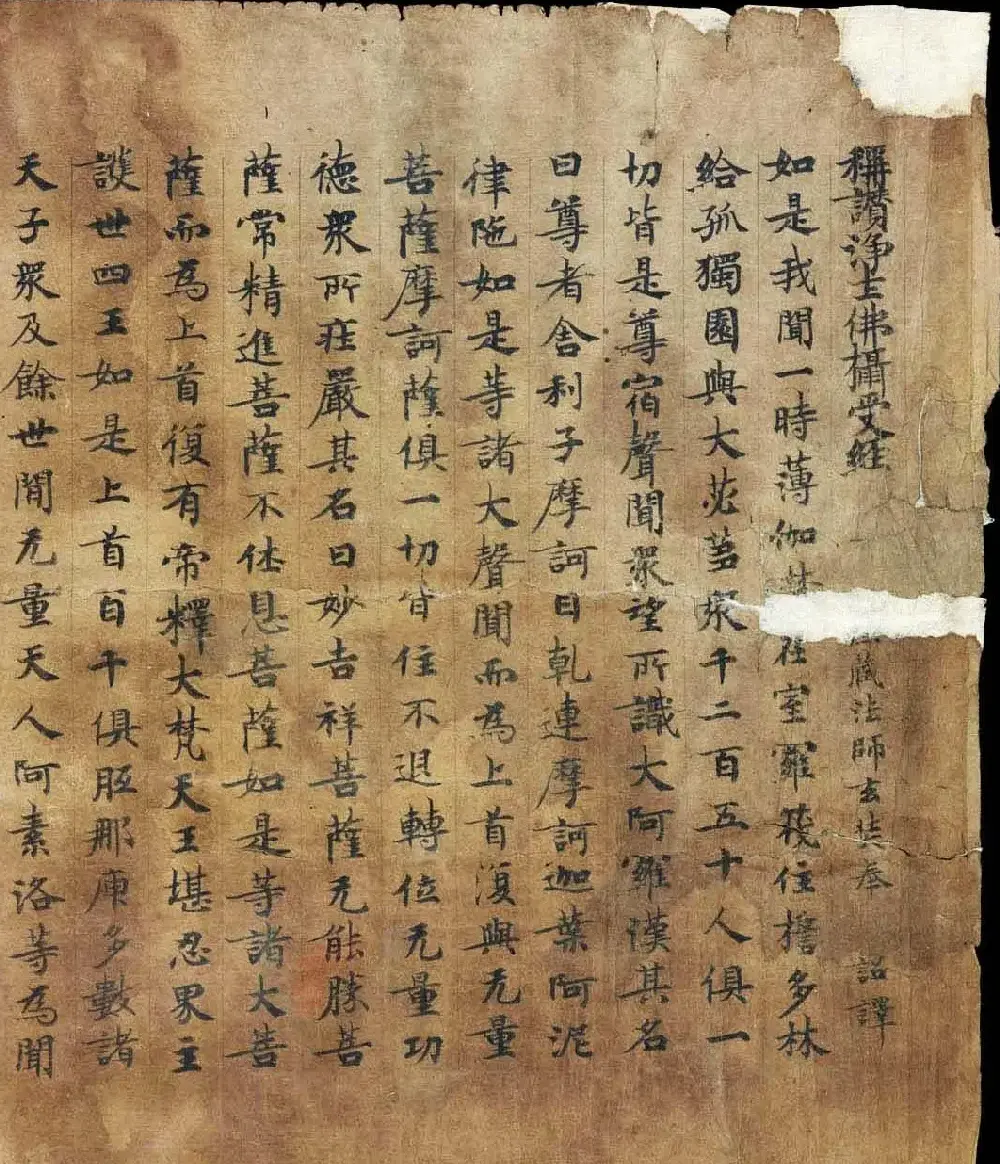 稱讚淨土佛攝受經 藏法師玄奘奉 詔譯
如是我聞一時薄伽在室羅筏住誓多林
給孤獨園與大苾芻衆千二百五十人俱一
切皆是尊宿聲聞衆望所識大阿羅漢其名
曰尊者舍利子摩訶目乹連摩訶迦葉阿泥
律陁如是等諸大聲聞而為上首復與无量
菩薩摩訶薩俱一切皆住不退轉位无量功
德衆所莊嚴其名曰妙吉祥菩薩无能勝菩
薩常精進菩薩不休息菩薩如是等諸大菩
薩而為上首復有帝釋大梵天王堪忍界主
護世四王如是上首百千俱胝那庾多數諸
天子衆及餘世閒无量天人阿素洛等為聞